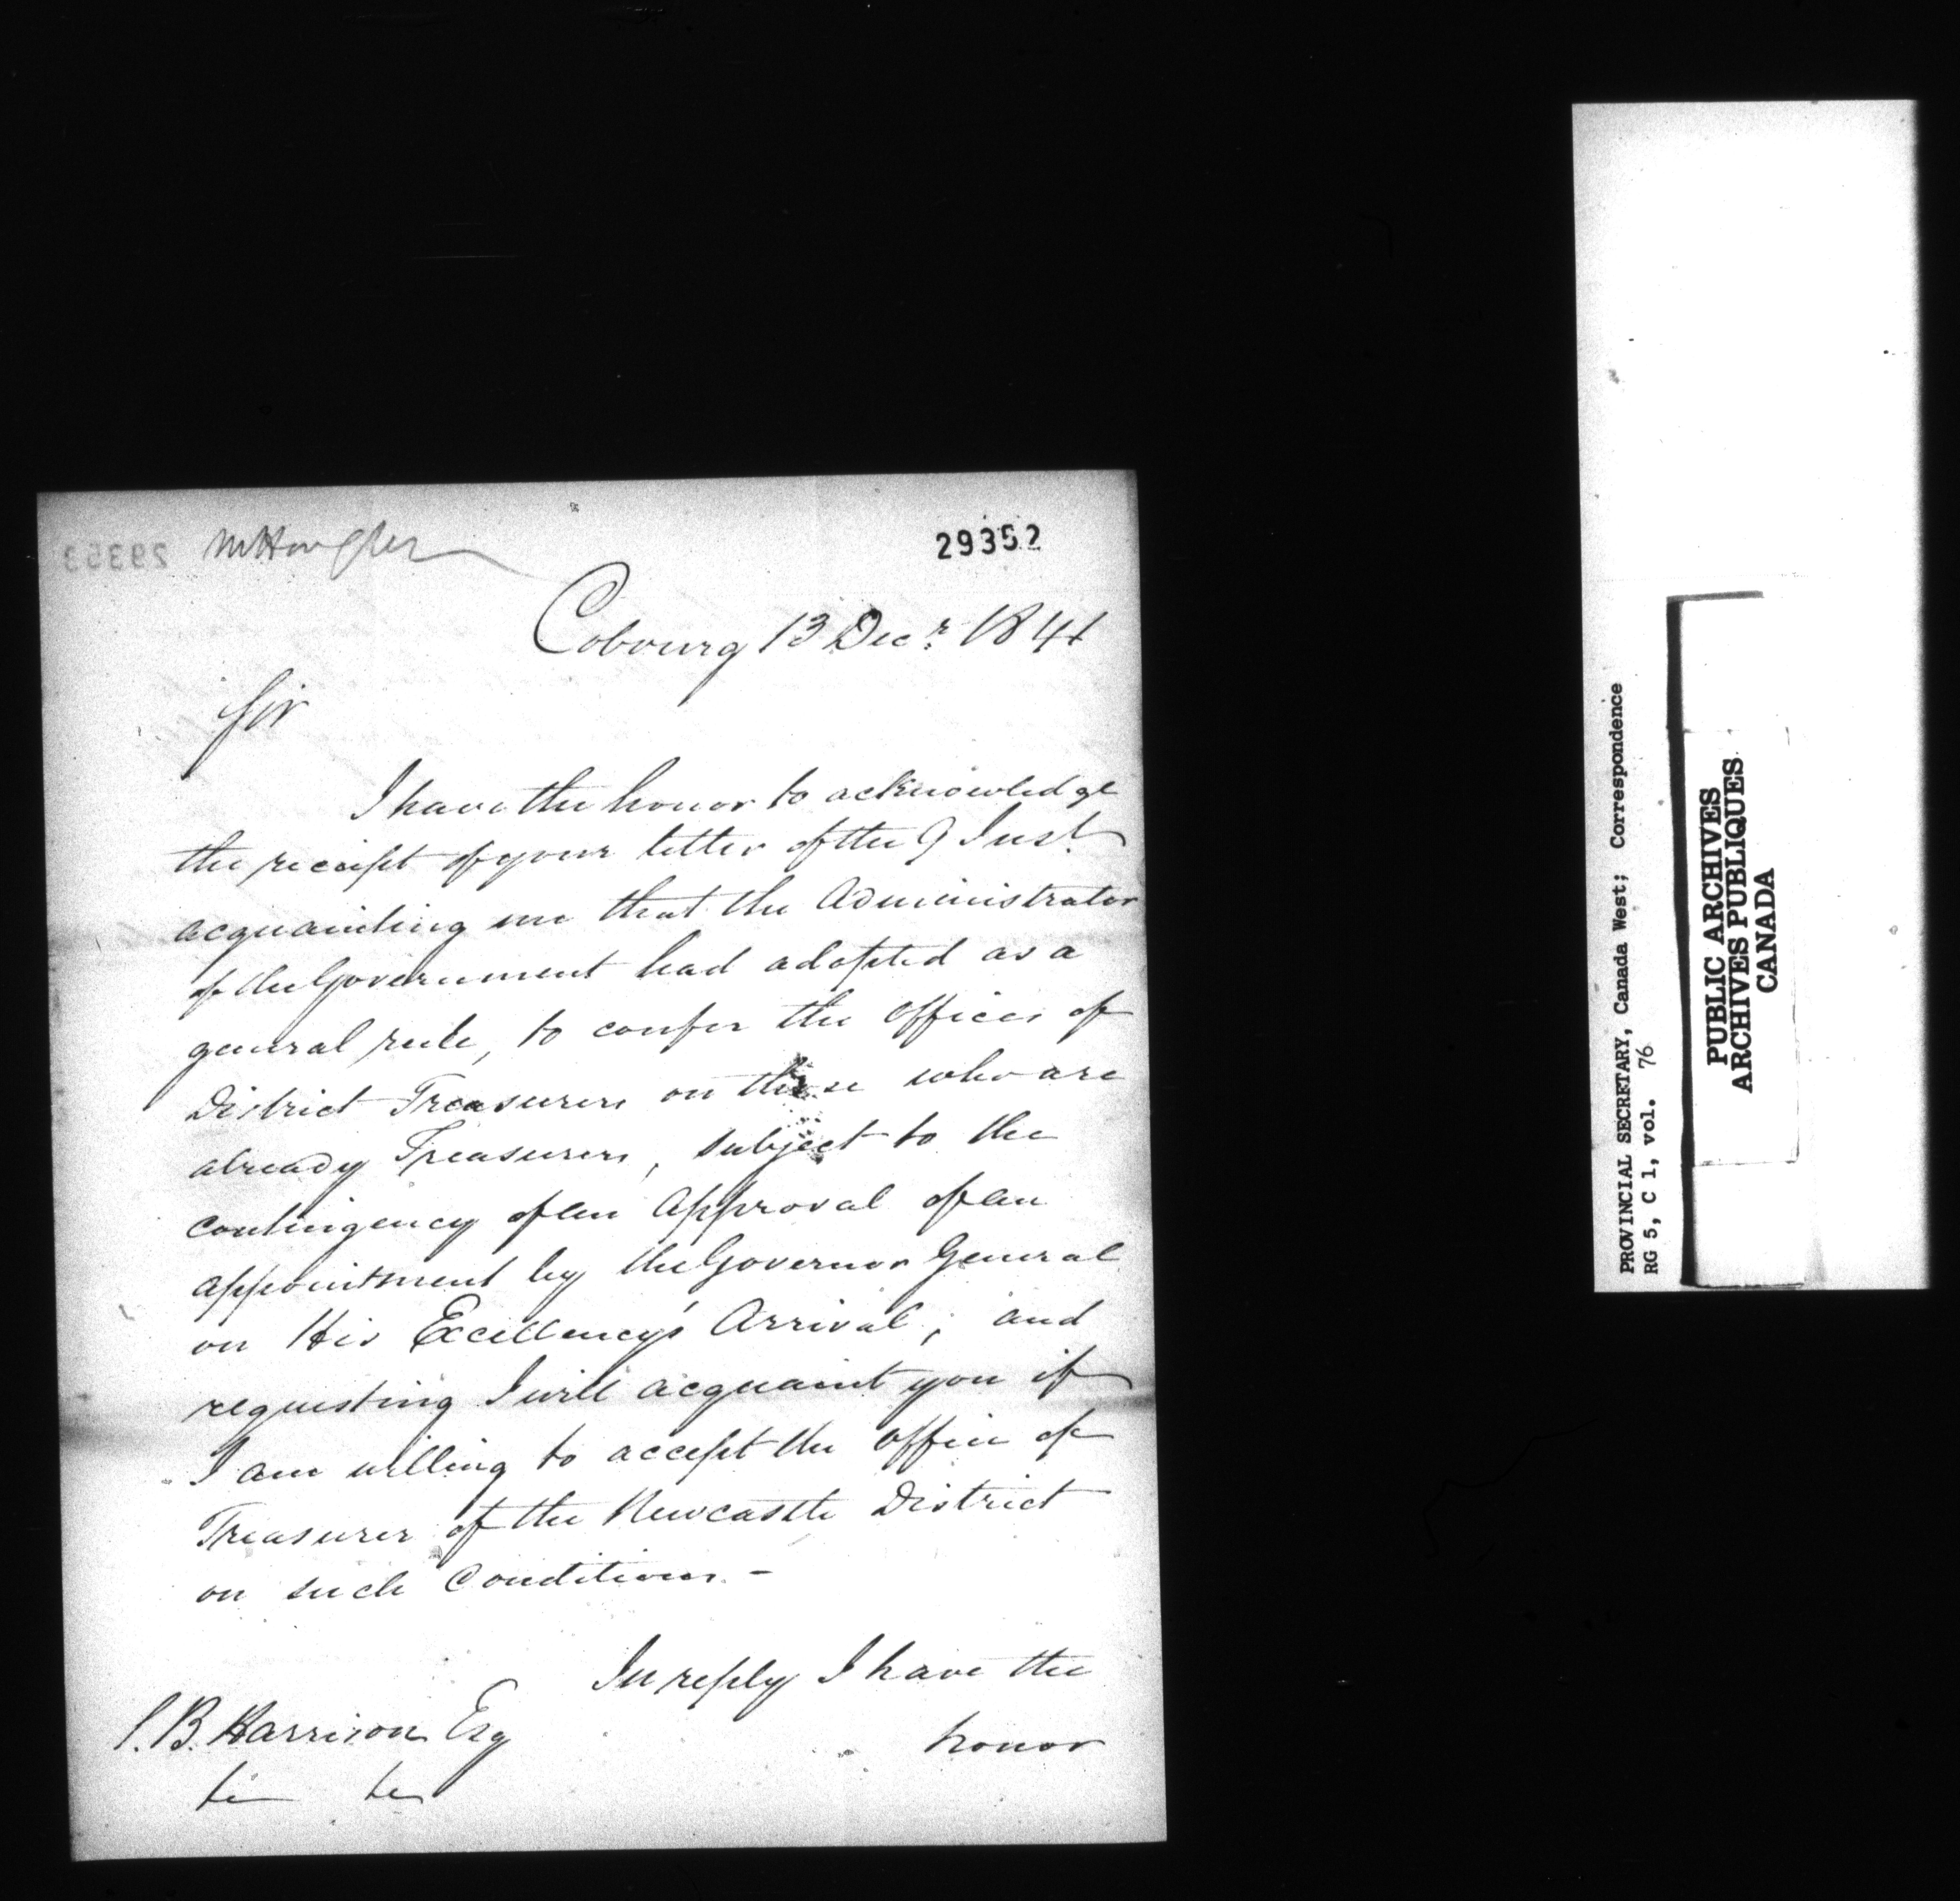 29352
Cobourg 13 Decr. 1841
Sir
I have the honor to acknowledge
the receipt of your letter of the 9 Inst
acquainting me that the Administrator
of the Government had adopted as a
general rule, to confer the offices of
District Treasurers on those who are
already Treasurers, subject to the
contingency of an Approval of an
appointment by the Governor General
on His Excellency's Arrival; and
requesting I will acquaint you if
I am willing to accept the office of
Treasurer of the Newcastle District
on such Conditions. -
In reply I have the
honor
S. B. Harrison Esq
PROVINCIAL SECRETARY, Canada West; Correspondence
RG 5, C 1, vol. 76
PUBLIC ARCHIVES
ARCHIVES PUBLIQUES
CANADA